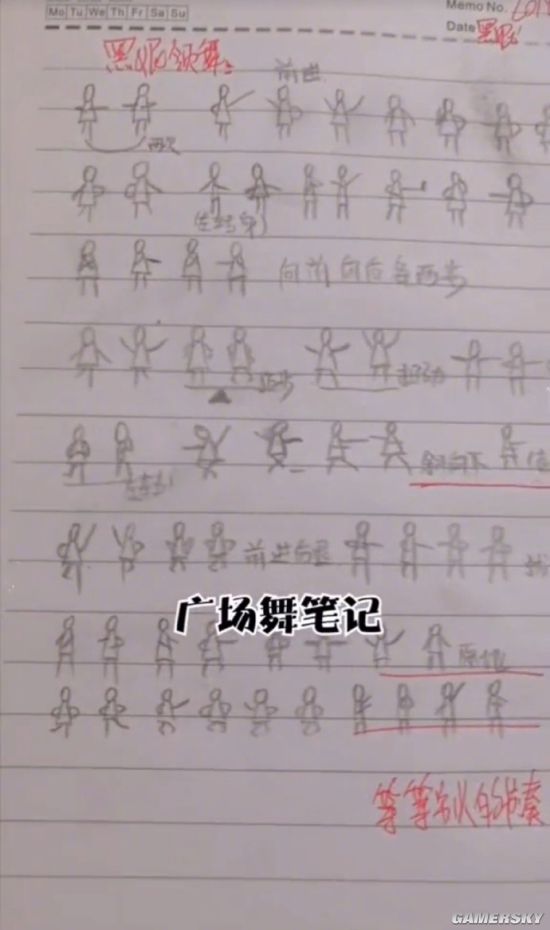 Mo Tu We Th Fr Sa Su
Memo No.
Date
黑妮领舞:
前进
两次
(左转身)
向前向后各两步
斜向下
前进后退
广场舞笔记
原地
等等别人的节奏
GAMERSKY